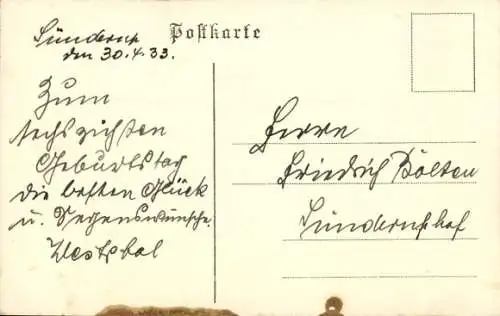 Sünderup
den 30.4.33.
Postkarte
Zum
sechszichsten
Geburtstag
die besten Glück
u. Segenswünsche.
Westphal
Herrn
Friedrich Bölten
Sünderuphof